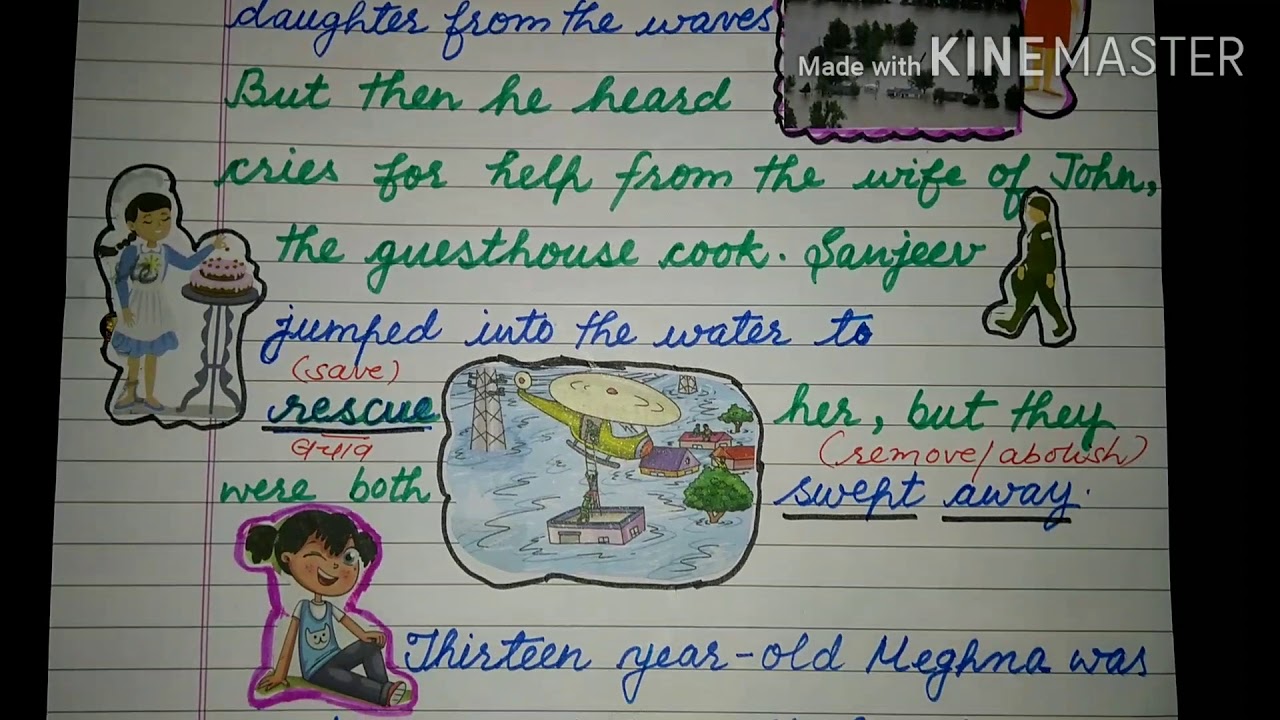 daughter from the waves
Made with KINEMASTER
But then he heard
cries for help from the wife of John,
the guesthouse cook. Sanjeev
jumped into the water to
(save)
rescue her, but they
बचाव (remove/abolish)
were both swept away.
Thirteen year-old Meghna was